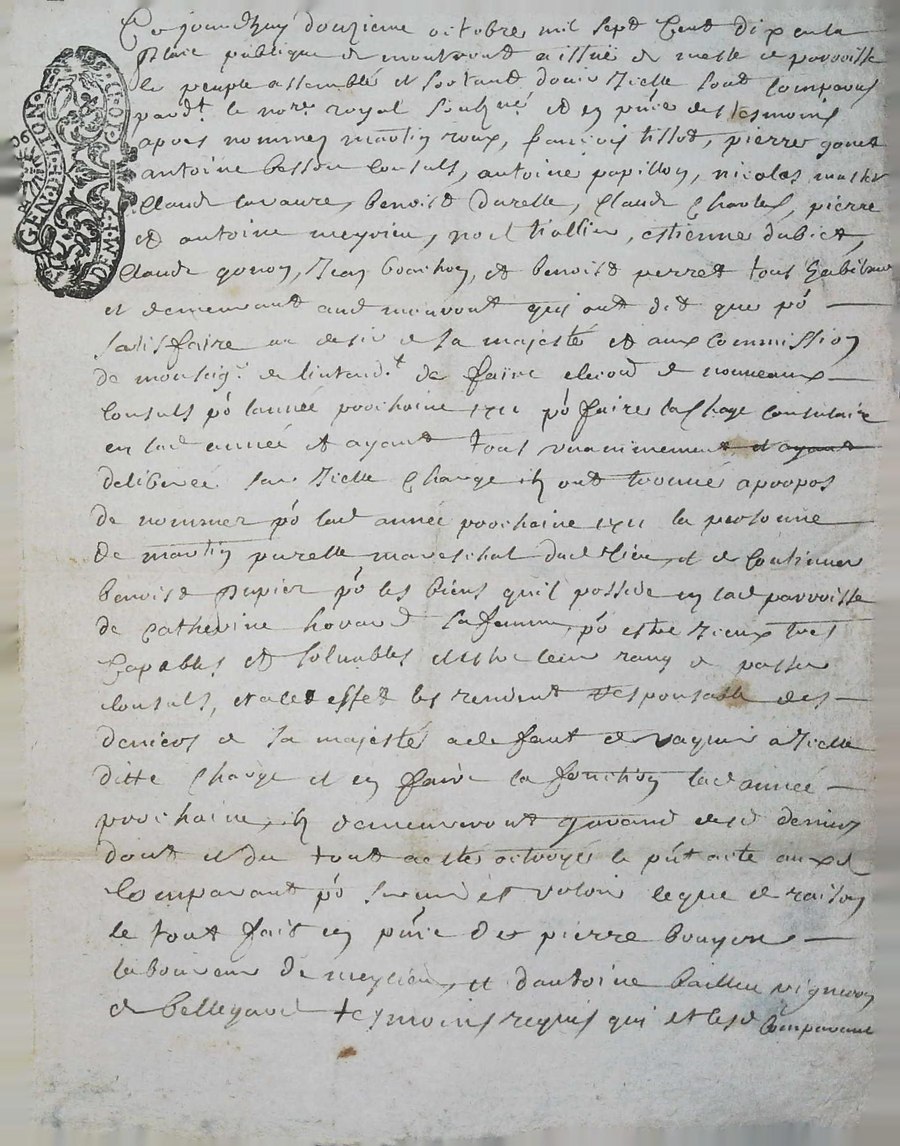 Ce jourdhuy douzieme octobre mil sept Cent dix en la
place publique de montrond a issüe de messe de parroisse
le peuple assemblé et sortant dicie Jcelle sont Comparus
pardt. le nore. royal soubzné et en pnce des tesmoins
apres nommez martin roux, francois tissot, pierre
antoine basson Consuls, antoine papillon, nicolas
Claude lavaure, benoist durelle, Claude Charles, pierre
et antoine meyrieu, noel thollin, estienne dubiet,
Claude gonon, Jean Cronhon, et benoist perret tous habitans
et demeurant aud monront qui ont dit que po
satisfaire au desir de sa majesté et aux Commission
de monseigr. de lintendt. de faire election de nouveaux
Consuls po lannée prochaine 1711 po faire la Charge Consulaire
en lad année et ayant tous unanimement et ayant
deliberée sur Jcelle Charge ils ont trouvé apropos
de nommer po lad année prochaine 1711 la personne
de martin purelle mareschal dud lieu et de Continuer
benoist Dupier po les biens quil possede en lad parroisse
de Catherine sa femme, po estre Jceux tres
Capables et soluables et estre leur rang de passer
Consuls, et a cest effet les rendent Responsable des
deniers de sa majesté a defaut de vaquer a Jcelle
ditte Charge et en faire la fonction lad année
prochaine, ils demeureront garand desd deniers
dont et du tout actes octroyés le pnt acte auxd
Comparant po servir et valoir ce que de raison
le tout fait en pnce de pierre bouyon
laboureur de meylieu, et dantoine baillu vigneron
de bellegard tesmoins requis qui et lesd Comparant
GEN. DE LYON